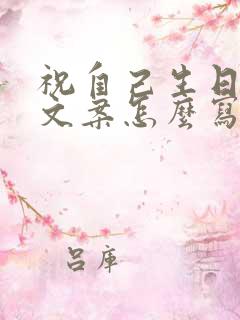 祝自己生日
文案怎麼寫
呂庫